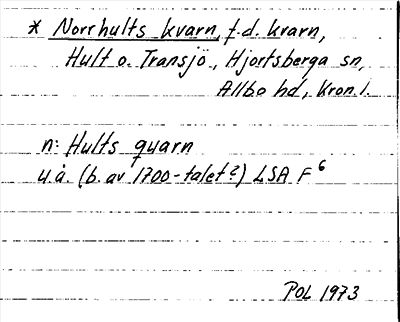 * Norrhults kvarn, f.d. kvarn,
Hult o. Transjö, Hjortsberga sn,
Allbo hd, Kron. l.
n: Hults quarn
u.å. (b. av 1700-talet?) LSA F 6
POL 1973